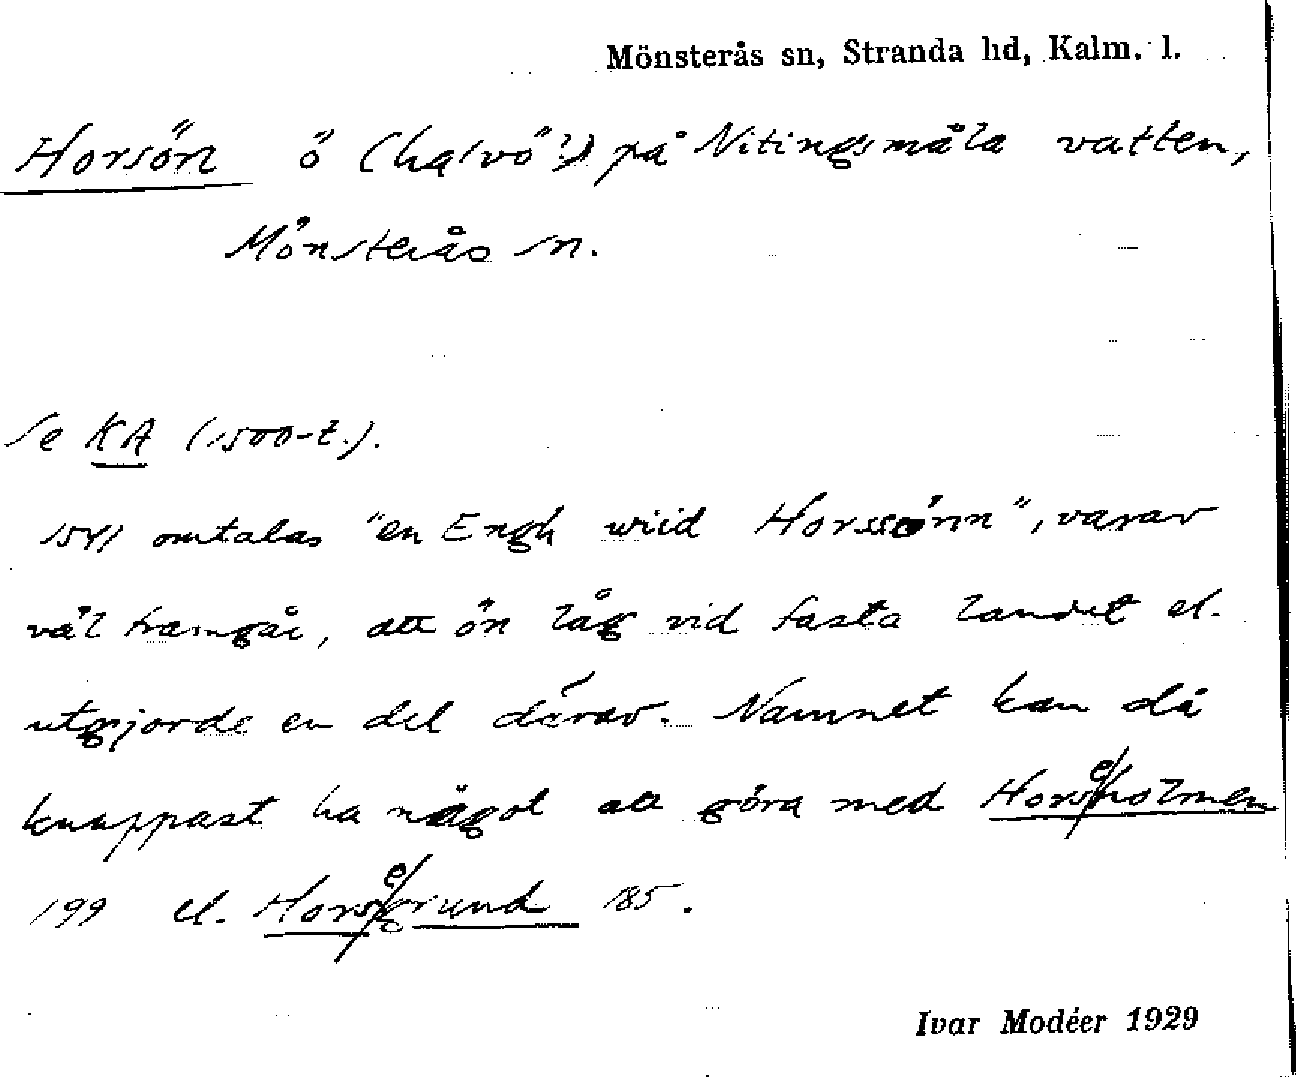 Mönsterås sn, Stranda hd, Kalm. l.
Horsön ö (halvö?) på Nitingsmåla vatten,
Mönsterås sn.
Se KA (1500-t.).
1541 omtalas "en Engh wiid Horssörnn", varav
väl framgår, att ön låg vid fasta landet el.
utgjorde en del därav. Namnet kan då
knappast ha något att göra med Horseholmen
199 el. Horsegrund 185.
Ivar Modéer 1929